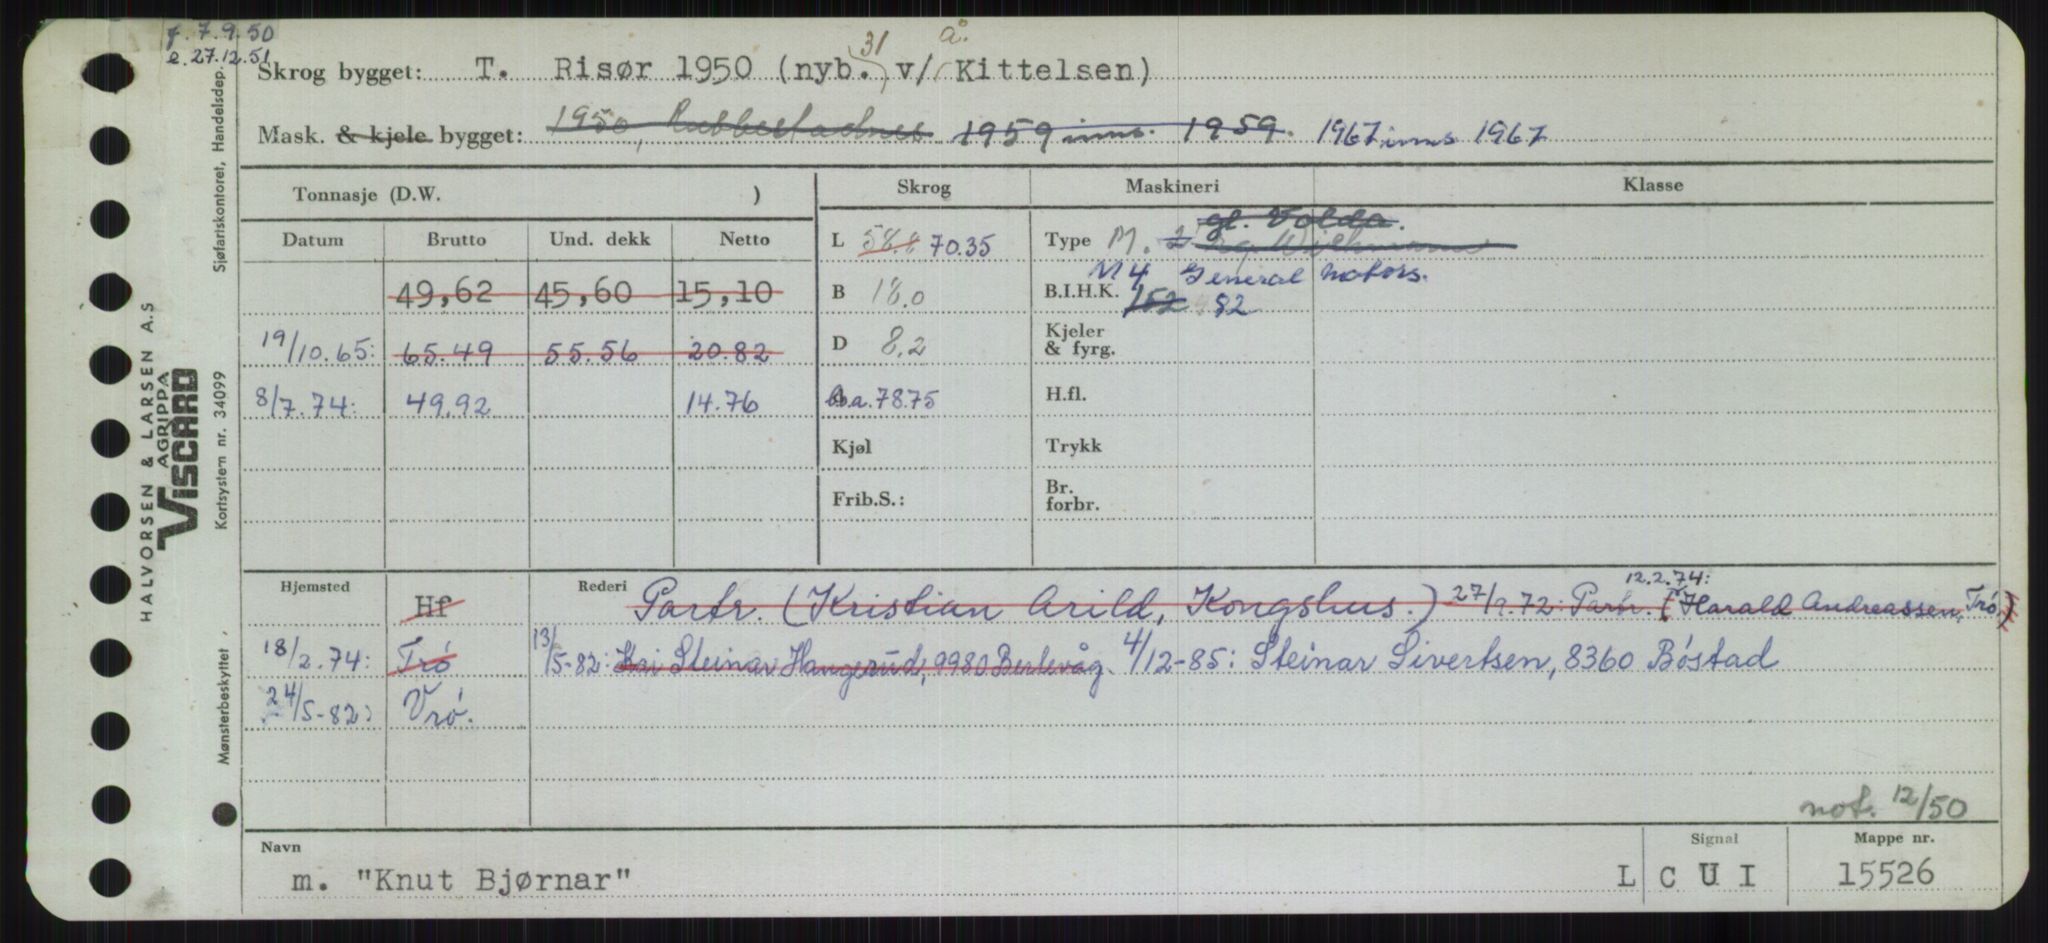 f. 7.9.50
e. 27.12.51
31 å.
Skrog bygget: T. Risør 1950 (nyb. v/ Kittelsen)
Mask. & kjele bygget: 1950, Rubbestadnes 1959 inns. 1959. 1967 inns 1967
Tonnasje (D.W. ) Skrog Maskineri Klasse
gl. Volda.
Datum Brutto Und. dekk Netto L 58.8 70.35 Type M. 2 Wichmann
M 4 General Motors.
49,62 45,60 15,10 B 18.0 B.I.H.K. 152 82
19/10.65: 65.49 55.56 20.82 D 8,2 Kjeler & fyrg.
8/7.74: 49.92 14.76 b.a. 78.75 H.fl.
Kjøl Trykk
Frib.S.: Br. forbr.
12.2.74:
Hjemsted Hf Rederi Partr. (Kristian Arild, Kongshus.) 27/9.72: Partr. (Harald Andreassen, Trø)
18/2.74: Trö 13/5-82: Kai Steinar Haugerud, 9980 Berlevåg. 4/12-85: Steinar Sivertsen, 8360 Böstad
24/5-82: Vrö.
not. 12/50
Navn Signal Mappe nr.
m. "Knut Bjørnar" L C U I 15526
HALVORSEN & LARSEN A.S
AGRIPPA
VISCARD
Sjøfartskontoret, Handelsdep.
Kortsystem nr. 34099
Mønsterbeskyttet